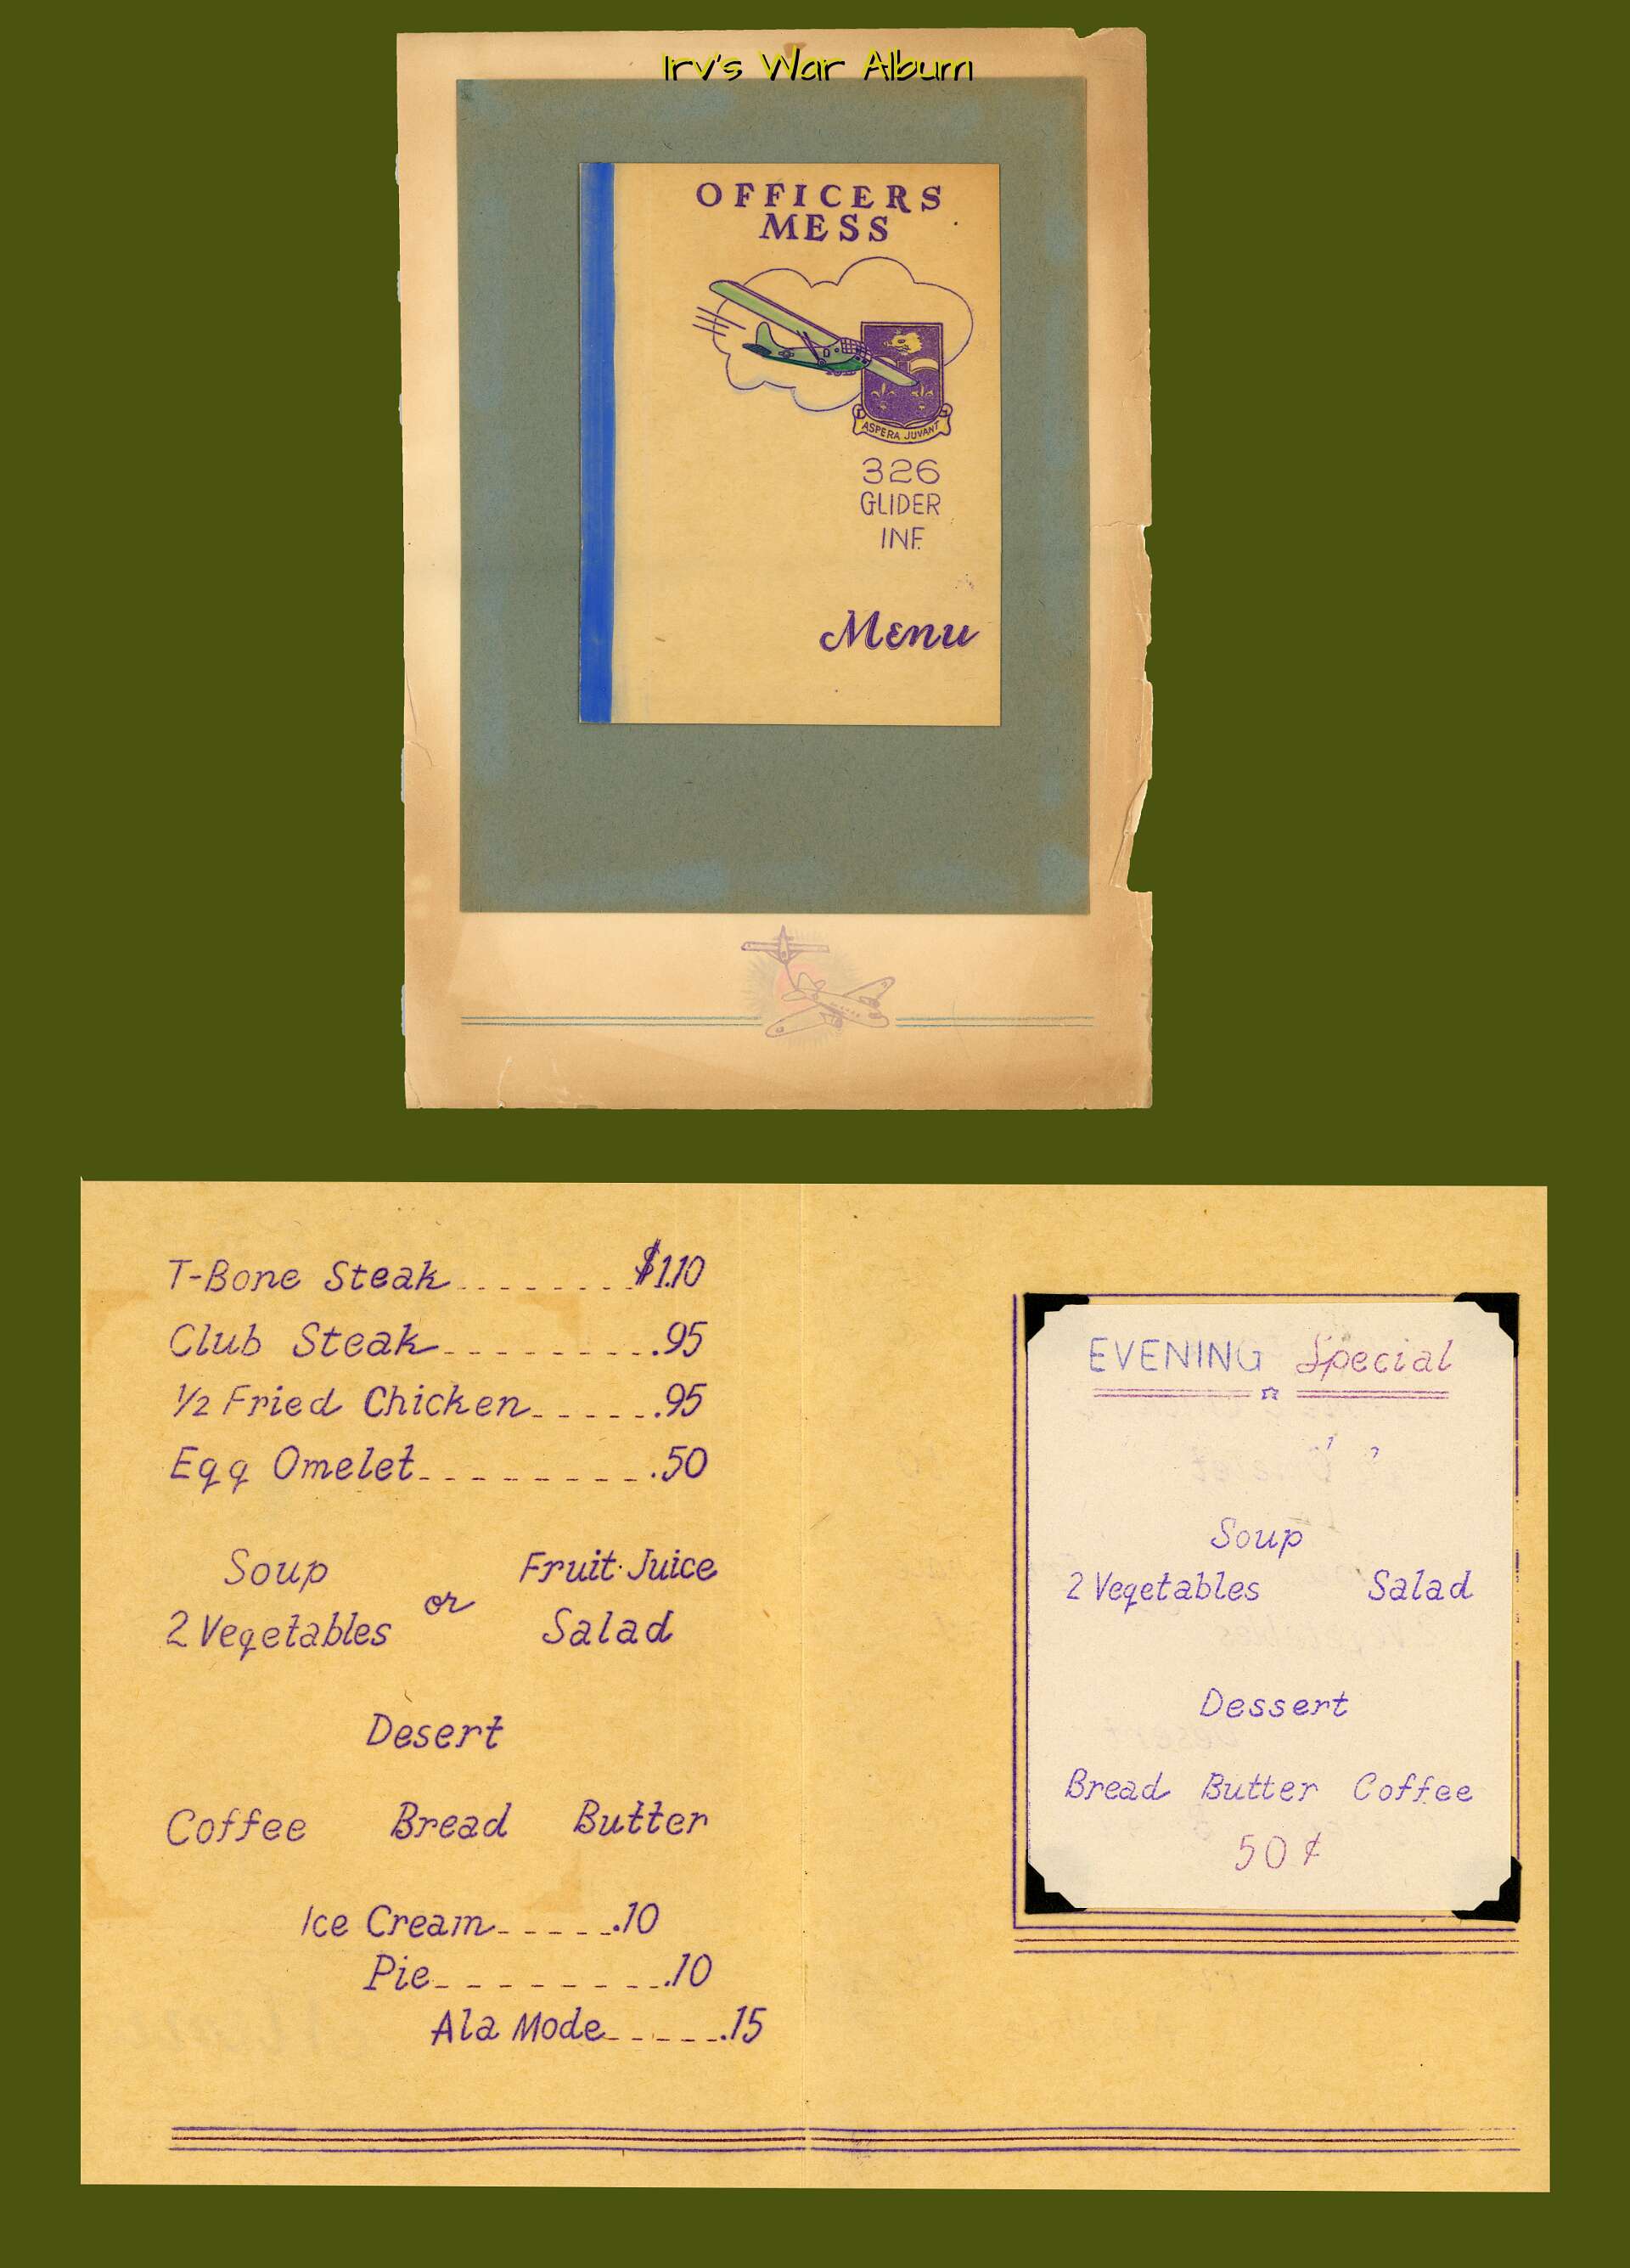 Irv's War Album
OFFICERS
MESS
ASPERA JUVANT
326
GLIDER
INF.
Menu
T-Bone Steak........$1.10
Club Steak.........95
1/2 Fried Chicken......95
Egg Omelet.........50
Soup or Fruit Juice
2 Vegetables Salad
Desert
Coffee Bread Butter
Ice Cream.....10
Pie........10
Ala Mode.....15
EVENING Special
Soup
2 Vegetables Salad
Dessert
Bread Butter Coffee
50¢